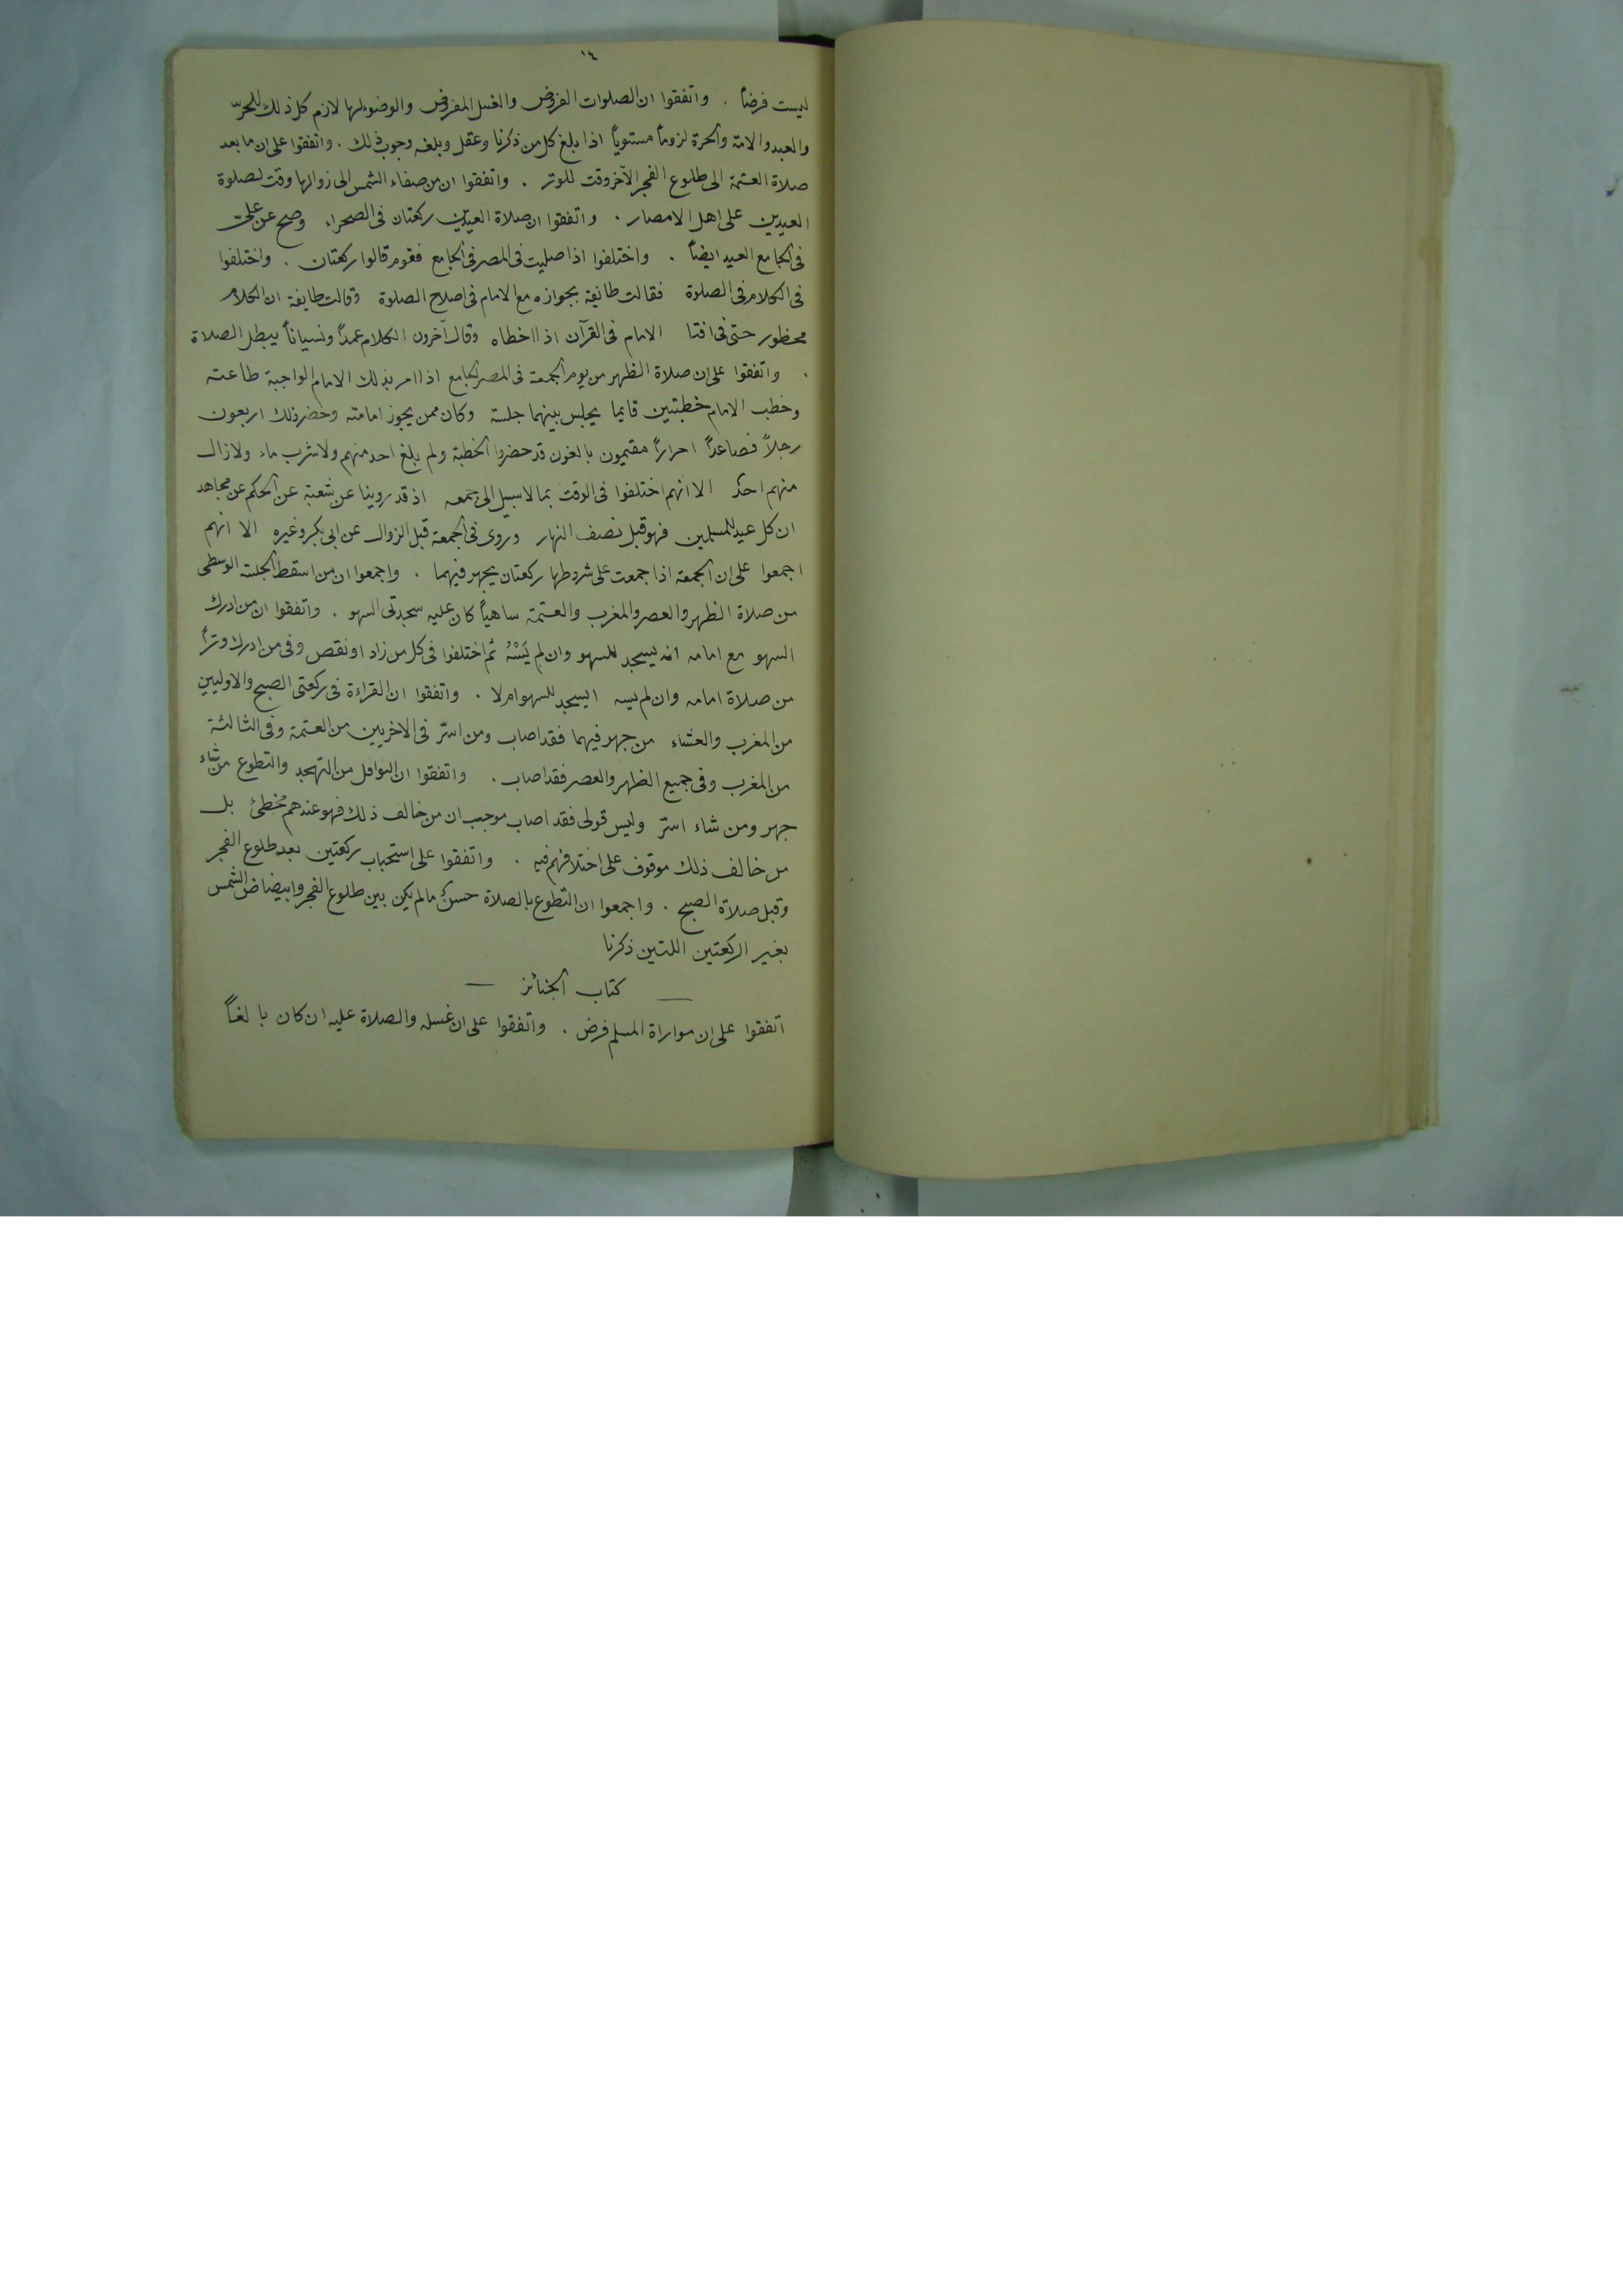 ١٤
ليست فرضاً . واتفقوا ان الصلوات الفروض والغسل المفروض والوضوء لها لازم كل ذلك للحرّ
والعبد والامة والحرة لزوماً مستوياً اذا بلغ كل من ذكرنا وعقل وبلغه وجوب ذلك . واتفقوا على ان ما بعد
صلاة العتمة الى طلوع الفجر الآخر وقت للوتر . واتفقوا ان من صفاء الشمس الى زوالها وقت لصلوة
العيدين على اهل الامصار . واتفقوا ان صلاة العيدين ركعتان فى الصحراء وصح عن علىّ
فى الجامع العيد ايضاً . واختلفوا اذا صليت فى المصر فى الجامع فقوم قالوا ركعتان . واختلفوا
فى الكلام فى الصلوة فقالت طائفة بجوازه مع الامام فى اصلاح الصلوة وقالت طايفة ان الكلام
محظور حتى فى افتا الامام فى القرآن اذا اخطاه وقال آخرون الكلام عمداً ونسياناً يبطل الصلاة
. واتفقوا على ان صلاة الظهر من يوم الجمعة فى المصر الجامع اذا امر بذلك الامام الواجبة طاعته
وخطب الامام خطبتين قايما يجلس بينهما جلسة وكان ممن يجوز امامته وحضر ذلك اربعون
رجلاً فصاعداً احراراً مقيمون بالغون قد حضروا الخطبة ولم يلغ احد منهم ولا شرب ماء ولا زال
منهم احدٌ الا انهم اختلفوا فى الوقت بما لا سبيل الى جمعه اذ قد روينا عن شعبة عن الحكم عن مجاهد
ان كل عيد للمسلمين فهو قبل نصف النهار وروى فى الجمعة قبل الزوال عن ابى بكر وغيره الا انهم
اجمعوا على ان الجمعة اذا جمعت على شروطها ركعتان يجهر فيهما . واجمعوا ان من اسقط الجلسة الوسطى
من صلاة الظهر والعصر والمغرب والعتمة ساهياً كان عليه سجدتى السهو . واتفقوا ان من ادرك
السهو مع امامه انه يسجد للسهو وان لم يَسْهُ ثم اختلفوا فى كل من زاد او نقص وفى من ادرك وتراً
من صلاة امامه وان لم يسه ايسجد للسهو ام لا . واتفقوا ان القراءة فى ركعتى الصبح والاوليين
من المغرب والعشاء من جهر فيهما فقد اصاب ومن اسرّ فى الاخريين من العتمة وفى الثالثة
من المغرب وفى جميع الظهر والعصر فقد اصاب . واتفقوا ان النوافل من التهجد والتطوع من شاء
جهر ومن شاء اسرّ وليس قولى فقد اصاب موجب ان من خالف ذلك فهو عندهم مخطئ بل
من خالف ذلك موقوف على اختلافهم فيه . واتفقوا على استحباب ركعتين بعد طلوع الفجر
وقبل صلاة الصبح . واجمعوا ان التطوع بالصلاة حسن ما لم يكن بين طلوع الفجر وابيضاض الشمس
بغير الركعتين اللتين ذكرنا
— كتاب الجنائز —
اتفقوا على ان مواراة المسلم فرض . واتفقوا على ان غسله والصلاة عليه ان كان بالغاً